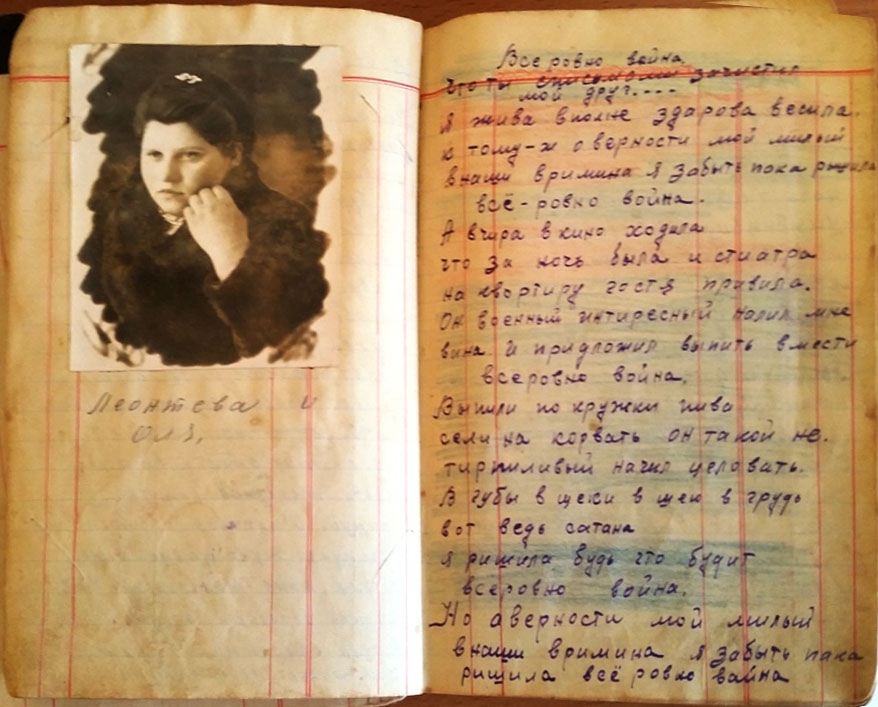 Леонтева и
Оля,
Всеровно война.
Что ты списмоми зачистил
мой друг....
Я жива вполне здарова весила.
к тому-ж о верности мой милый
внаши времина я забыть пака ришила
всё-ровно война.
А вчира в кино ходила
что за ночь была и стиатра
на квортиру гостя привила.
Он военный интиресный налил мне
вина и придложил выпить вмести
всеровно война.
Выпили по кружки пива
сели на корвать он такой не.
тирпиливый начил целовать.
В губы в щеки в шею в грудь
вот ведь сатана
я ришила будь что будит
всеровно война.
Но аверности мой милый
внаши времина я забыть пака
ришила всё ровно вайна